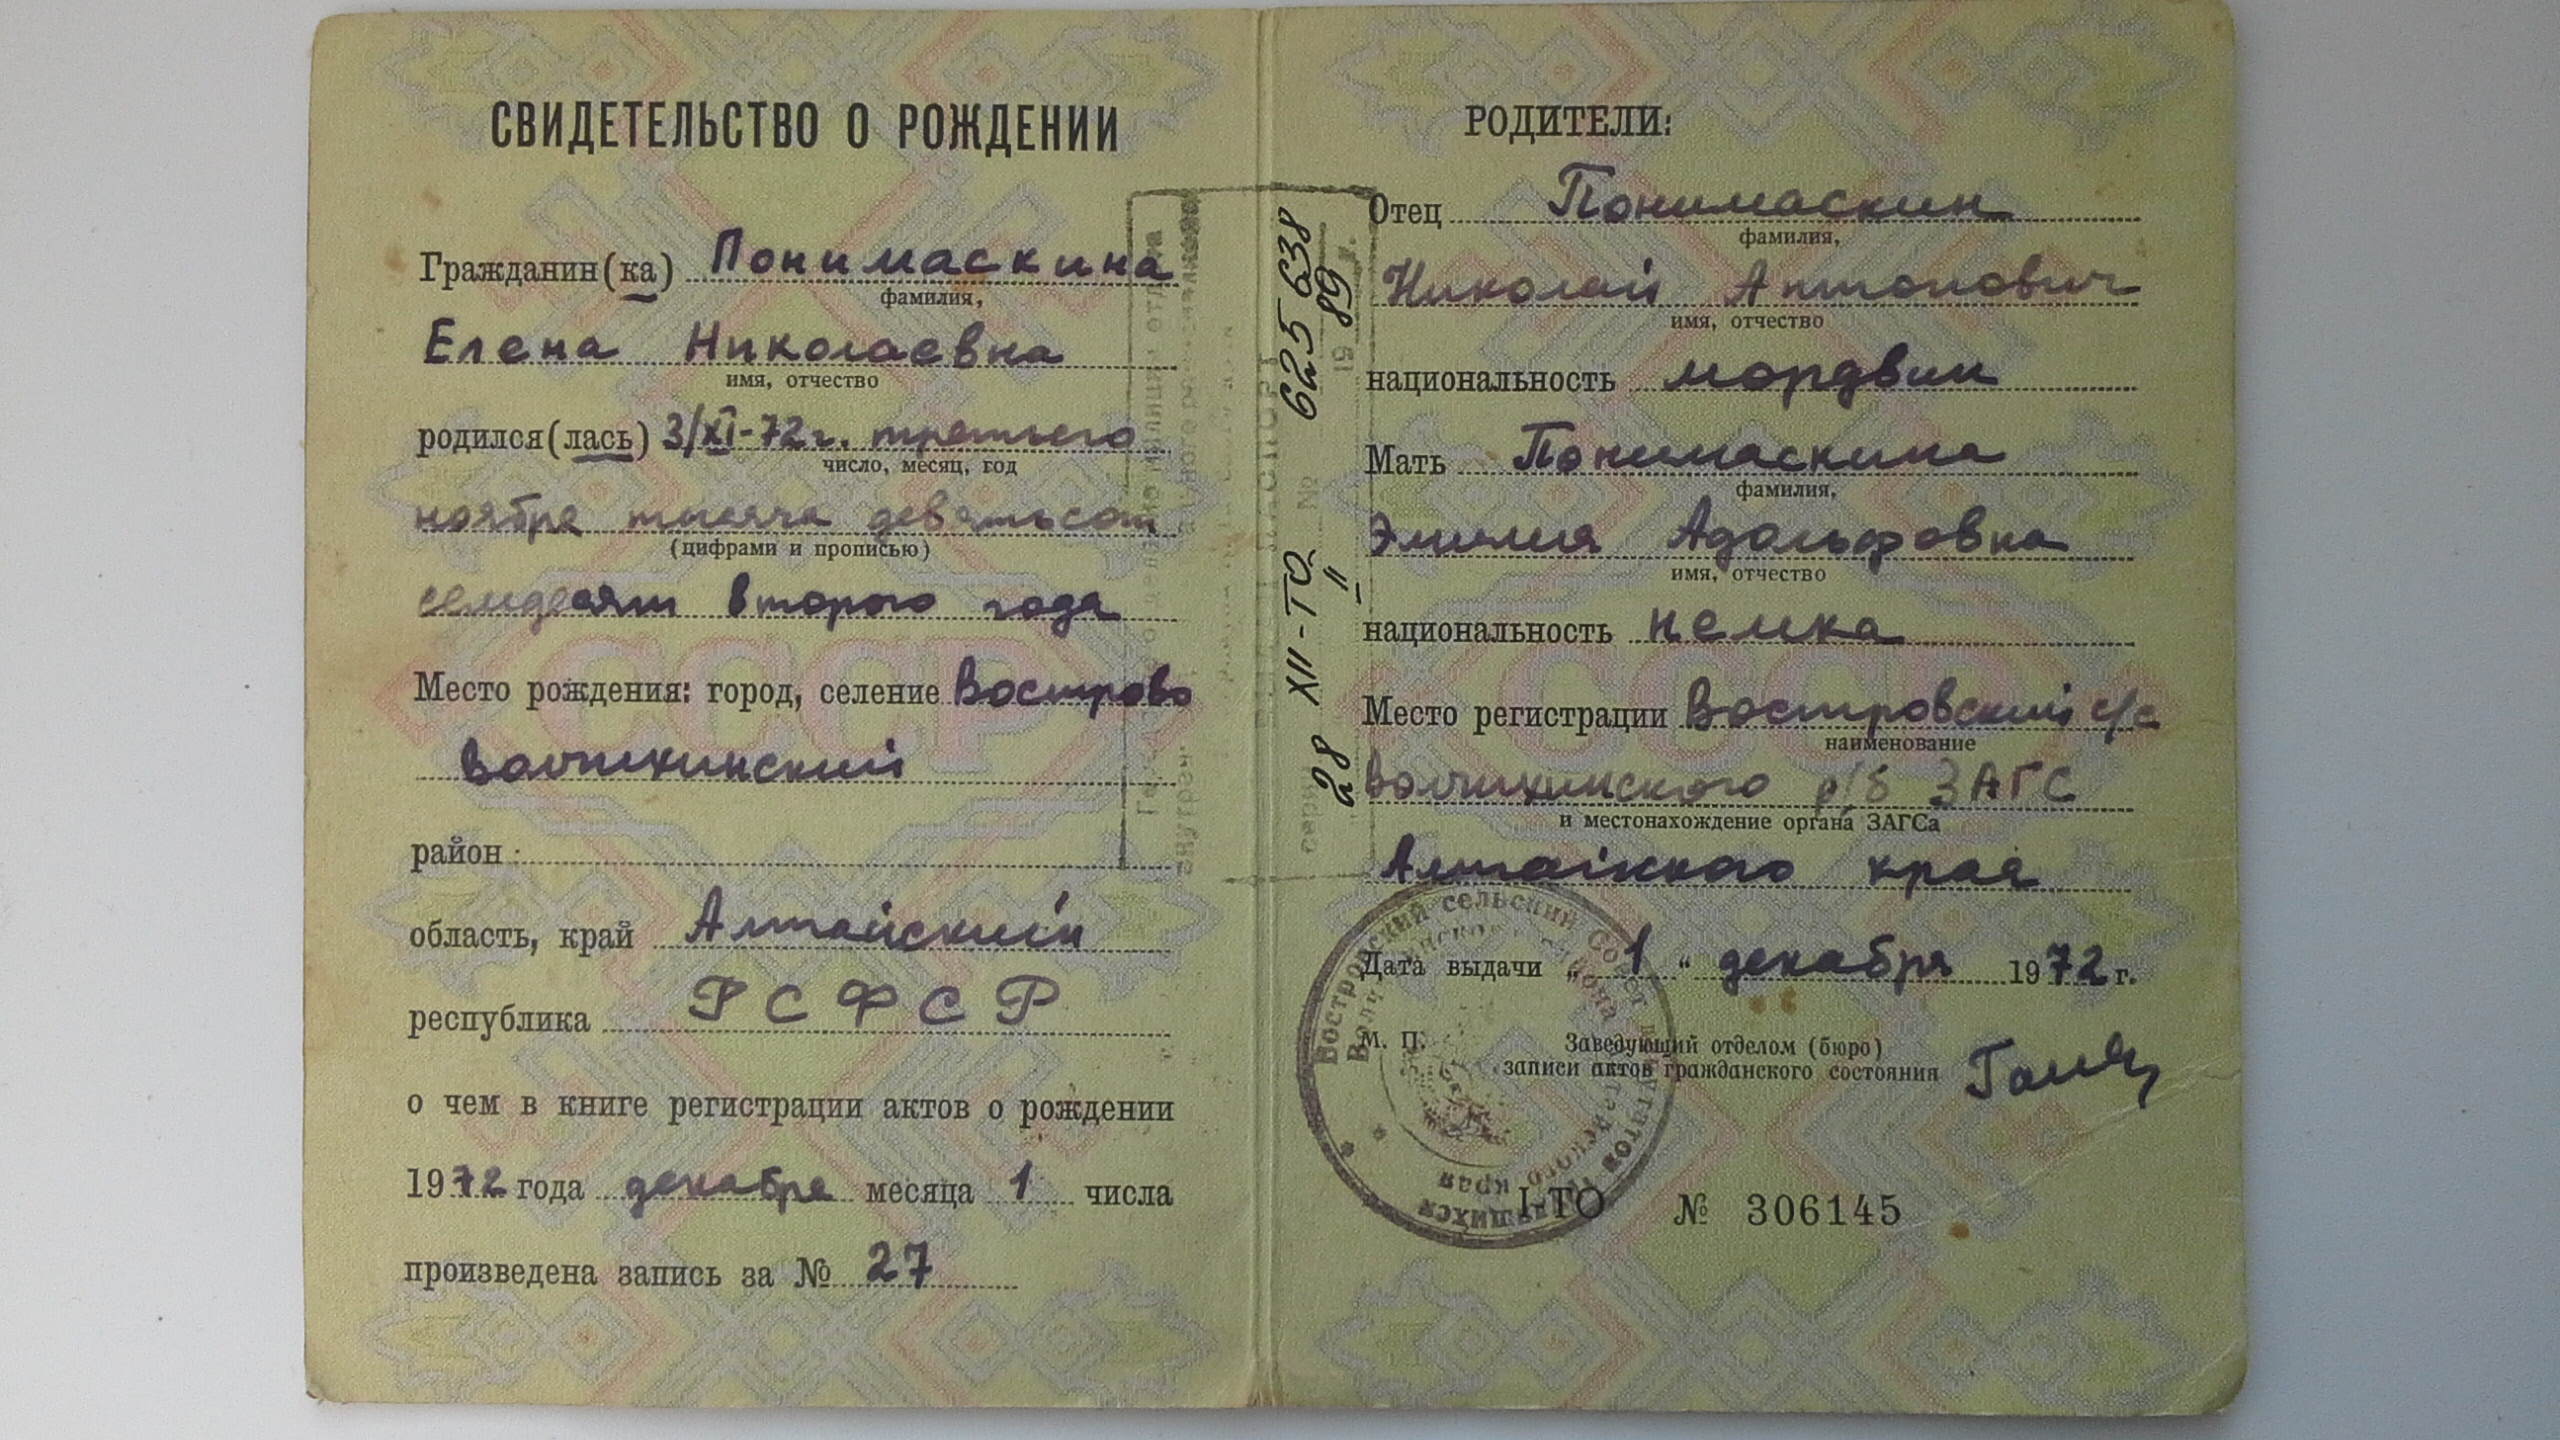 СВИДЕТЕЛЬСТВО О РОЖДЕНИИ
Гражданин(ка) Понимаскина
фамилия,
Елена Николаевна
имя, отчество
родился(лась) 3/XI-72г. третьего
число, месяц, год
ноября тысяча девятьсот
(цифрами и прописью)
семдесят второго года
Место рождения: город, селение Вострово
Волчихинский
район
область, край Алтайский
республика РСФСР
о чем в книге регистрации актов о рождении
1972 года декабря месяца 1 числа
произведена запись за № 27
РОДИТЕЛИ:
Отец Понимаскин
фамилия,
Николай Антонович
имя, отчество
национальность мордвин
Мать Понимаскина
фамилия,
Эмилия Адольфовна
имя, отчество
национальность немка
Место регистрации Востровский с/с
наименование
Волчихинского р/б ЗАГС
и местонахождение органа ЗАГСа
Алтайского края
Дата выдачи „ 1 “ декабря 1972 г.
М. П.
Заведующий отделом (бюро)
записи актов гражданского состояния
I-ТО № 306145
XII-ТО № 625638
28 11 1989 г.
Востровский сельский Совет депутатов трудящихся
края